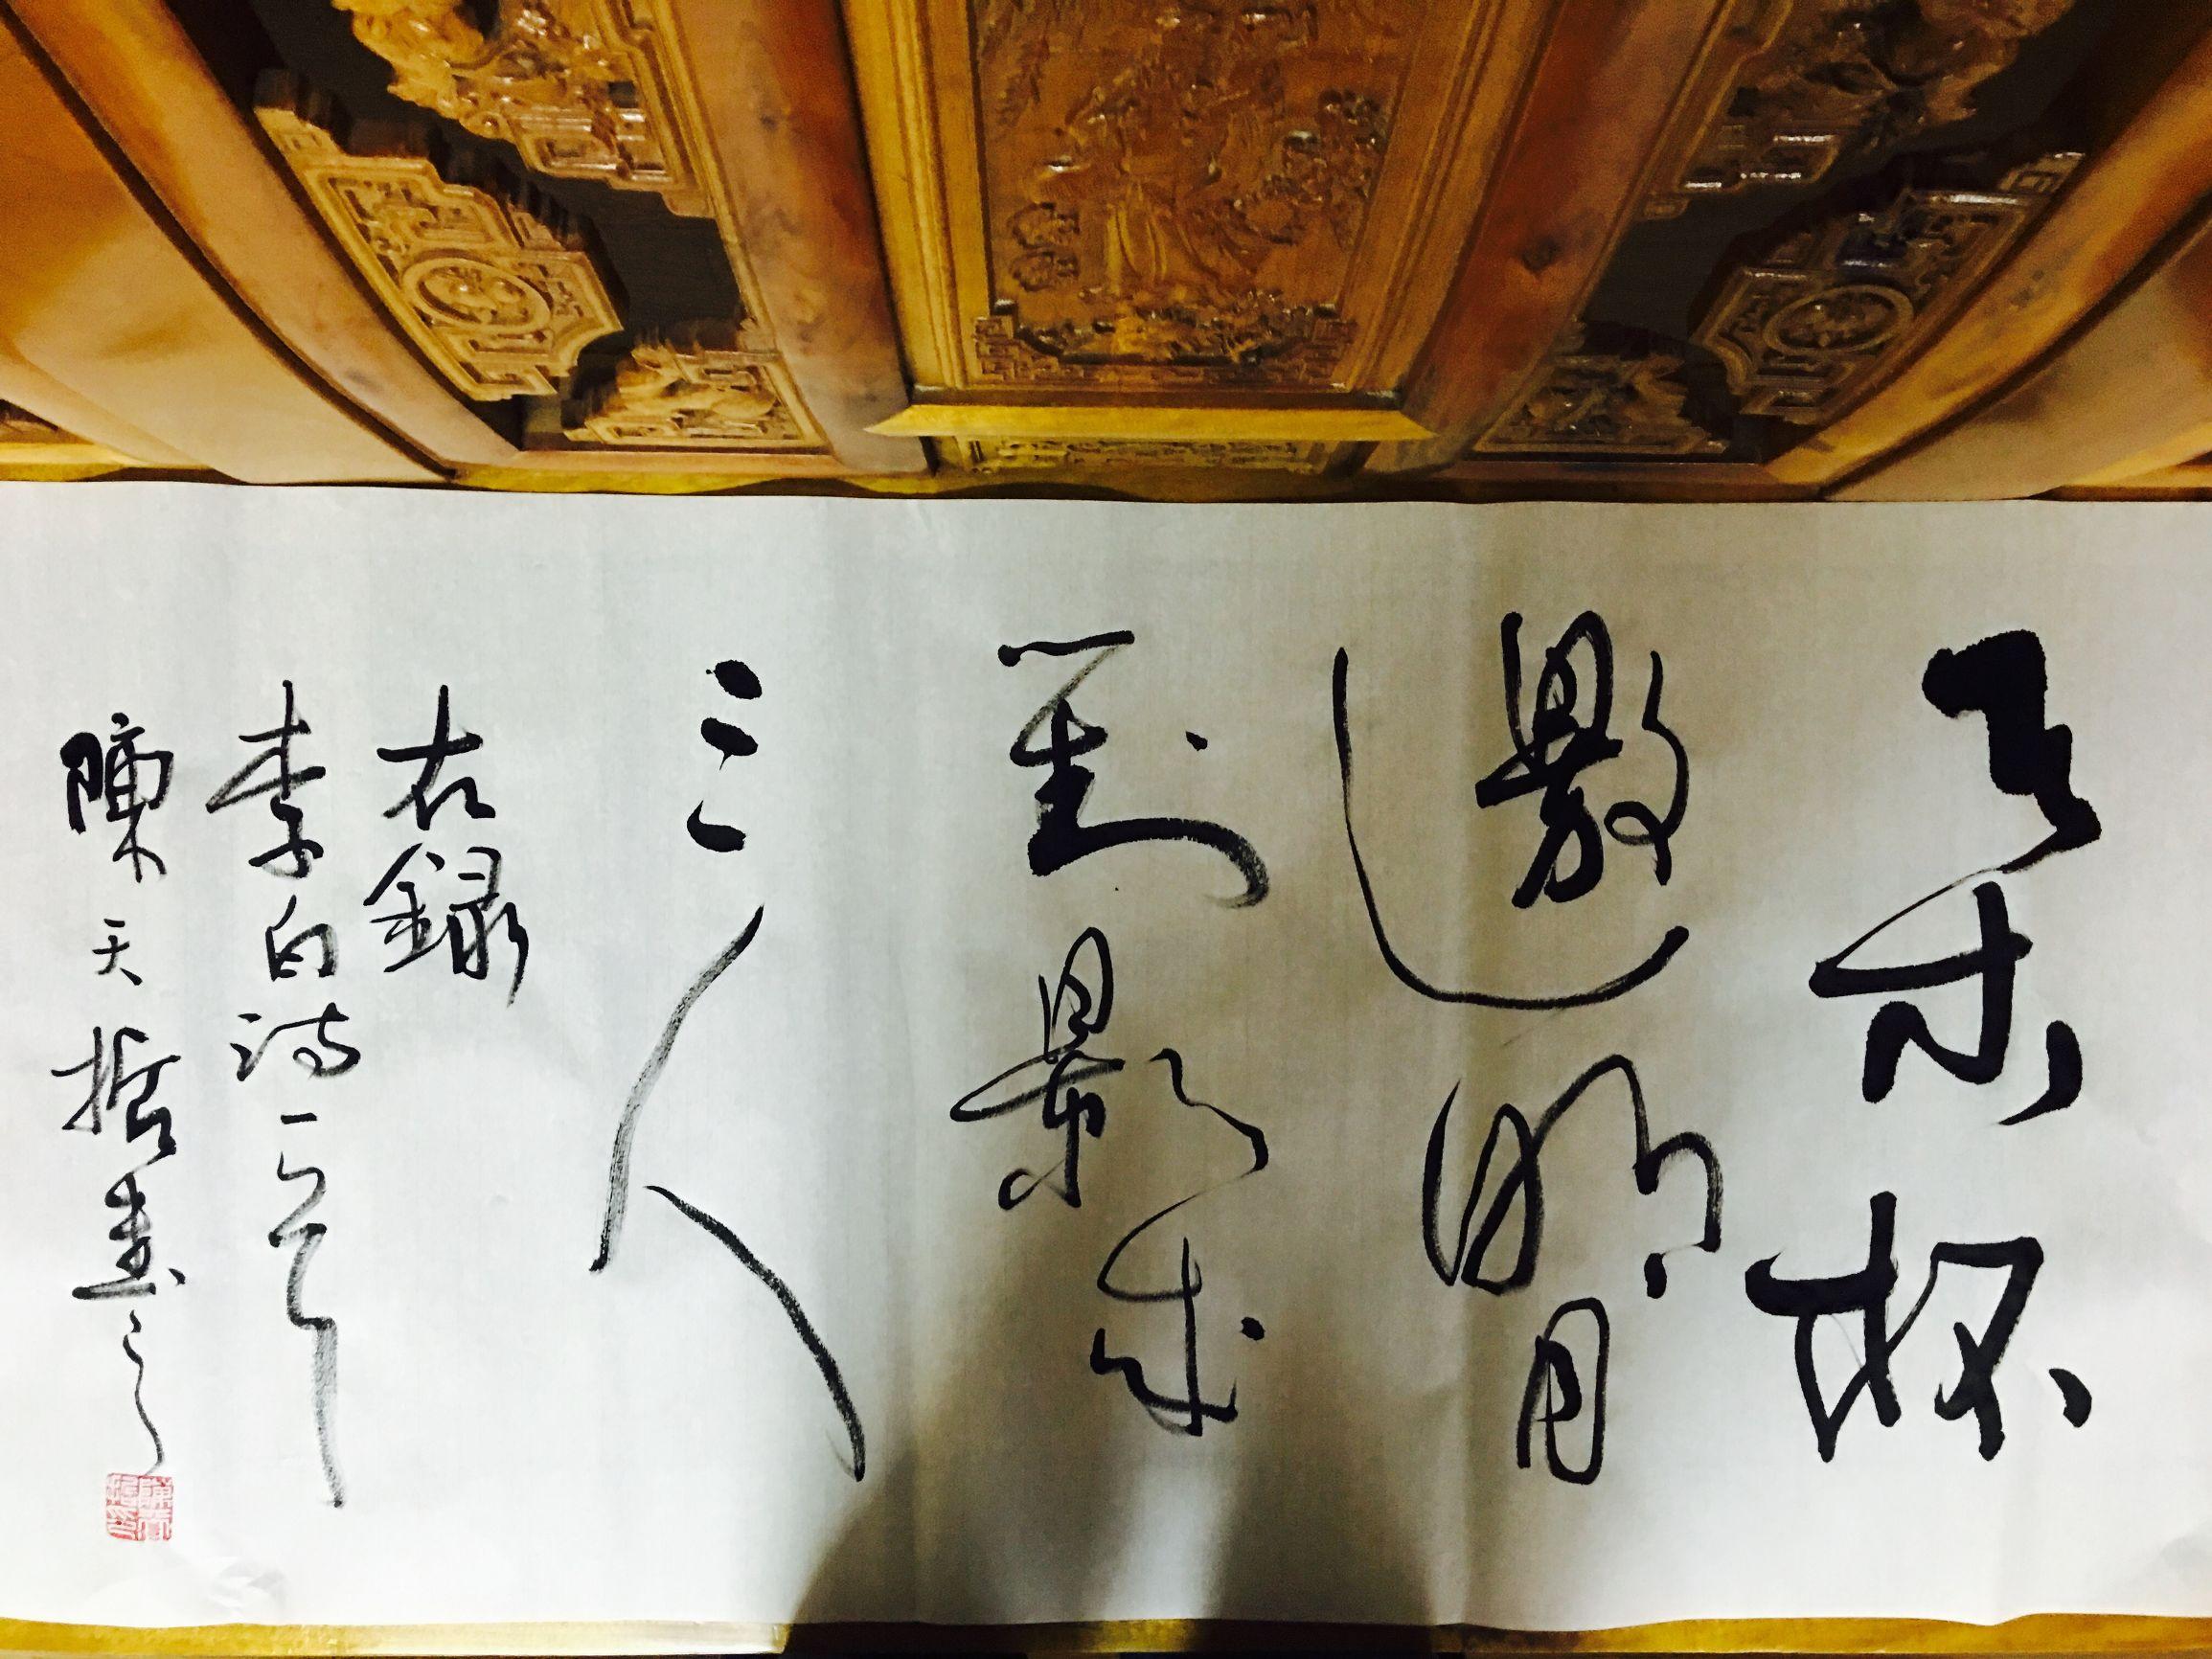 舉杯
邀明月
對影成
三人
右錄
李白詩一
陳天哲書之